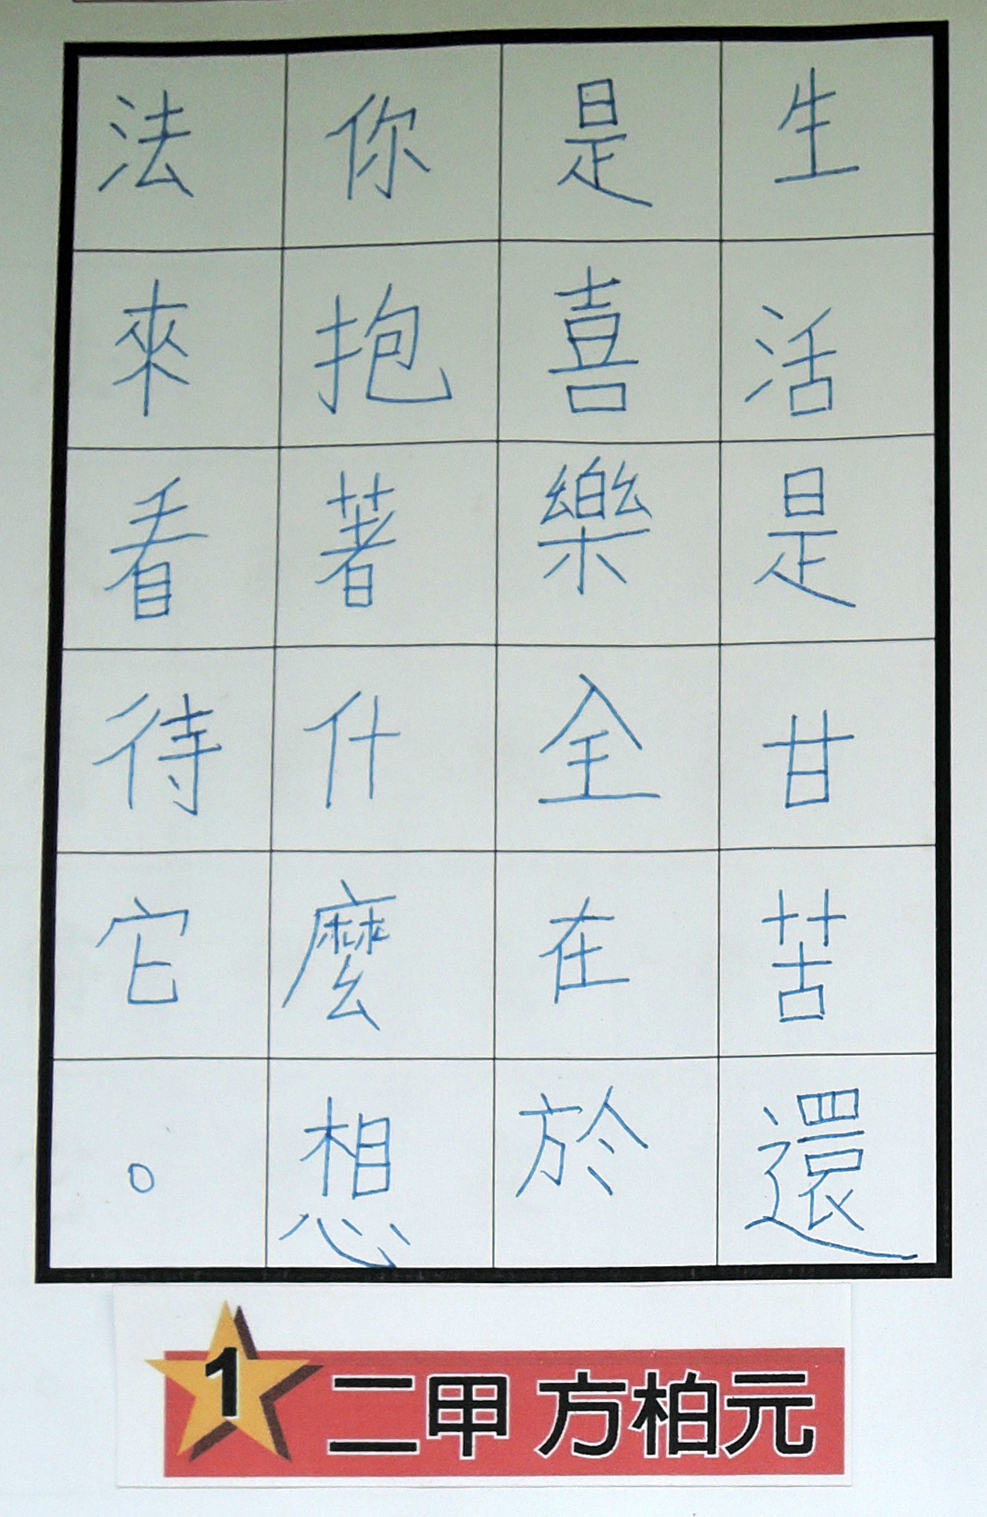 生活是甘苦還
是喜樂全在於
你抱著什麼想
法來看待它。
1 二甲 方柏元